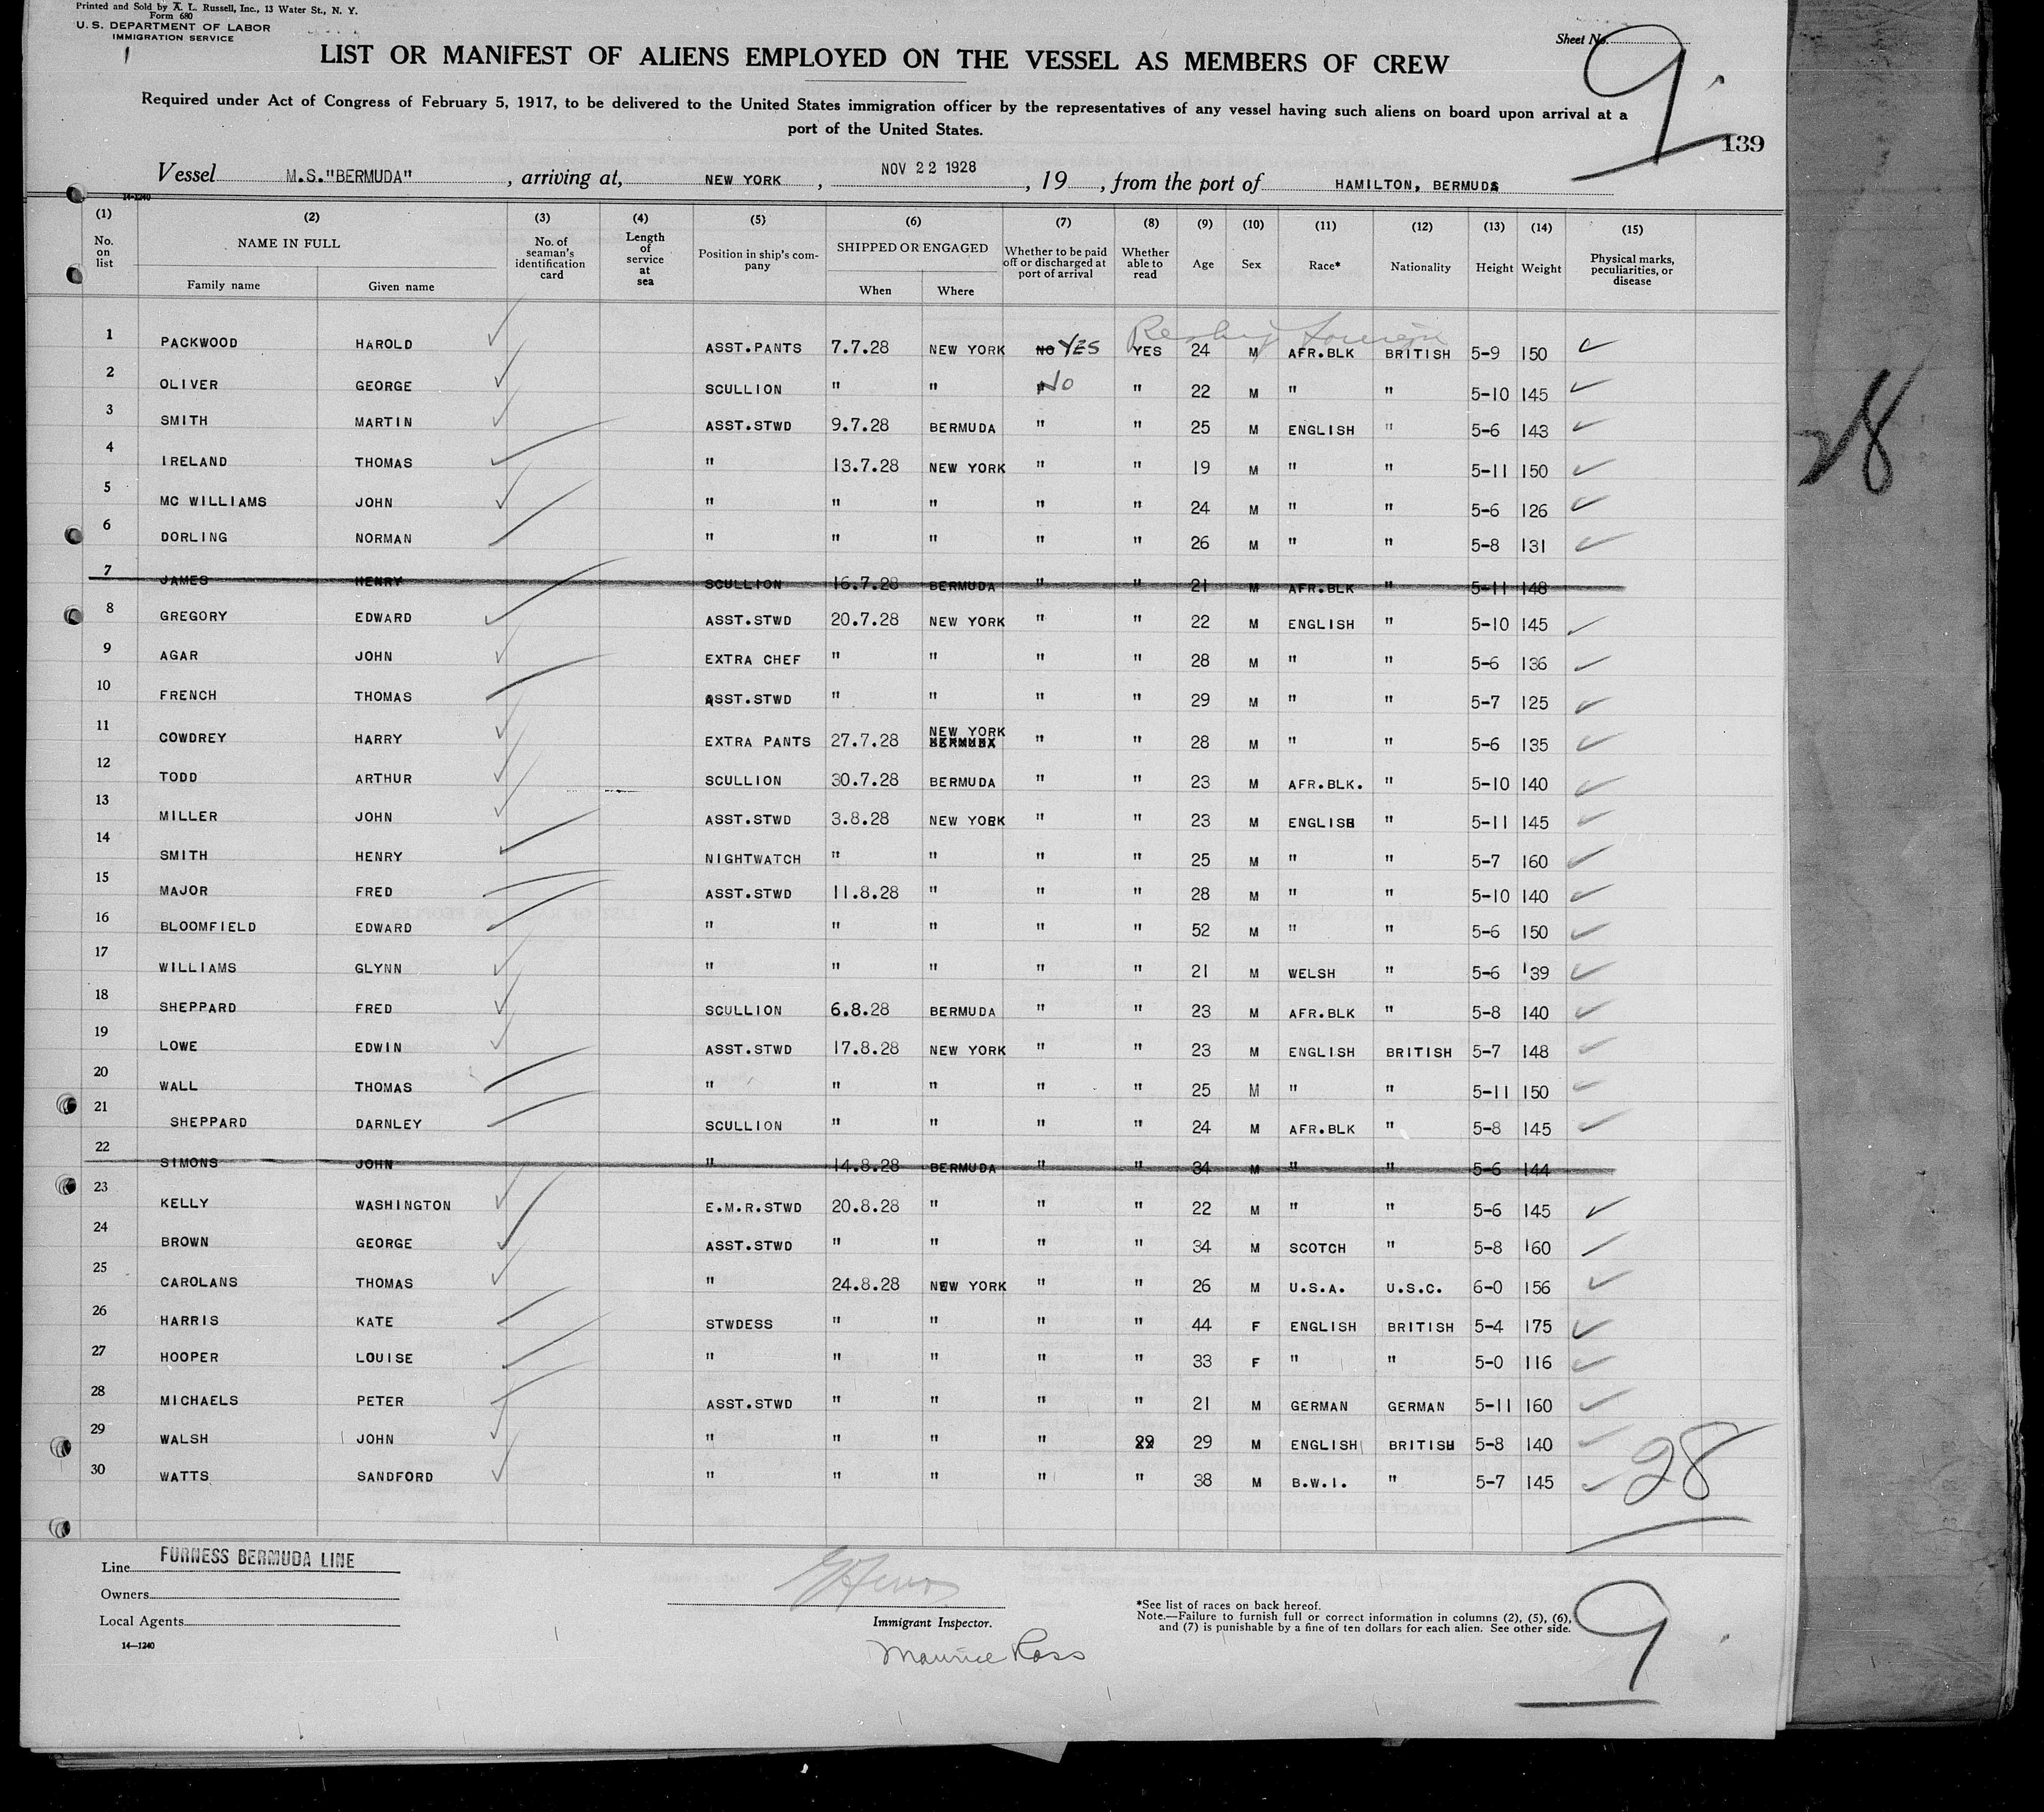 Printed and Sold by A. L. Russell, Inc., 13 Water St., N. Y.
Form 680
U. S. DEPARTMENT OF LABOR
IMMIGRATION SERVICE
Sheet No. 9
LIST OR MANIFEST OF ALIENS EMPLOYED ON THE VESSEL AS MEMBERS OF CREW
Required under Act of Congress of February 5, 1917, to be delivered to the United States immigration officer by the representatives of any vessel having such aliens on board upon arrival at a
port of the United States.
139
Vessel M.S."BERMUDA", arriving at, NEW YORK, NOV 22 1928, 19, from the port of HAMILTON, BERMUDA
14-1240
(1) (2) (3) (4) (5) (6) (7) (8) (9) (10) (11) (12) (13) (14) (15)
No. on list NAME IN FULL No. of seaman's identification card Length of service at sea Position in ship's company SHIPPED OR ENGAGED Whether to be paid off or discharged at port of arrival Whether able to read Age Sex Race* Nationality Height Weight Physical marks, peculiarities, or disease
Family name Given name When Where
1 PACKWOOD HAROLD ASST.PANTS 7.7.28 NEW YORK NO YES YES 24 M AFR.BLK BRITISH 5-9 150
2 OLIVER GEORGE SCULLION " " No " 22 M " " 5-10 145
3 SMITH MARTIN ASST.STWD 9.7.28 BERMUDA " " 25 M ENGLISH " 5-6 143
4 IRELAND THOMAS " 13.7.28 NEW YORK " " 19 M " " 5-11 150
5 MC WILLIAMS JOHN " " " " " 24 M " " 5-6 126
6 DORLING NORMAN " " " " " 26 M " " 5-8 131
7 JAMES HENRY SCULLION 16.7.28 BERMUDA " " 21 M AFR.BLK " 5-11 148
8 GREGORY EDWARD ASST.STWD 20.7.28 NEW YORK " " 22 M ENGLISH " 5-10 145
9 AGAR JOHN EXTRA CHEF " " " " 28 M " " 5-6 136
10 FRENCH THOMAS ASST.STWD " " " " 29 M " " 5-7 125
11 COWDREY HARRY EXTRA PANTS 27.7.28 NEW YORK BERMUDA " " 28 M " " 5-6 135
12 TODD ARTHUR SCULLION 30.7.28 BERMUDA " " 23 M AFR.BLK. " 5-10 140
13 MILLER JOHN ASST.STWD 3.8.28 NEW YORK " " 23 M ENGLISH " 5-11 145
14 SMITH HENRY NIGHTWATCH " " " " 25 M " " 5-7 160
15 MAJOR FRED ASST.STWD 11.8.28 " " " 28 M " " 5-10 140
16 BLOOMFIELD EDWARD " " " " " 52 M " " 5-6 150
17 WILLIAMS GLYNN " " " " " 21 M WELSH " 5-6 139
18 SHEPPARD FRED SCULLION 6.8.28 BERMUDA " " 23 M AFR.BLK " 5-8 140
19 LOWE EDWIN ASST.STWD 17.8.28 NEW YORK " " 23 M ENGLISH BRITISH 5-7 148
20 WALL THOMAS " " " " " 25 M " " 5-11 150
21 SHEPPARD DARNLEY SCULLION " " " " 24 M AFR.BLK " 5-8 145
22 SIMONS JOHN " 14.8.28 BERMUDA " " 34 M " " 5-6 144
23 KELLY WASHINGTON E.M.R.STWD 20.8.28 " " " 22 M " " 5-6 145
24 BROWN GEORGE ASST.STWD " " " " 34 M SCOTCH " 5-8 160
25 CAROLANS THOMAS " 24.8.28 NEW YORK " " 26 M U.S.A. U.S.C. 6-0 156
26 HARRIS KATE STWDESS " " " " 44 F ENGLISH BRITISH 5-4 175
27 HOOPER LOUISE " " " " " 33 F " " 5-0 116
28 MICHAELS PETER ASST.STWD " " " " 21 M GERMAN GERMAN 5-11 160
29 WALSH JOHN " " " " 29 M ENGLISH BRITISH 5-8 140
30 WATTS SANDFORD " " " " " 38 M B.W.I. " 5-7 145
28
28
Line FURNESS BERMUDA LINE
Owners
Local Agents
14—1240
Immigrant Inspector.
Maurice Ross
*See list of races on back hereof.
Note.—Failure to furnish full or correct information in columns (2), (5), (6),
and (7) is punishable by a fine of ten dollars for each alien. See other side.
9